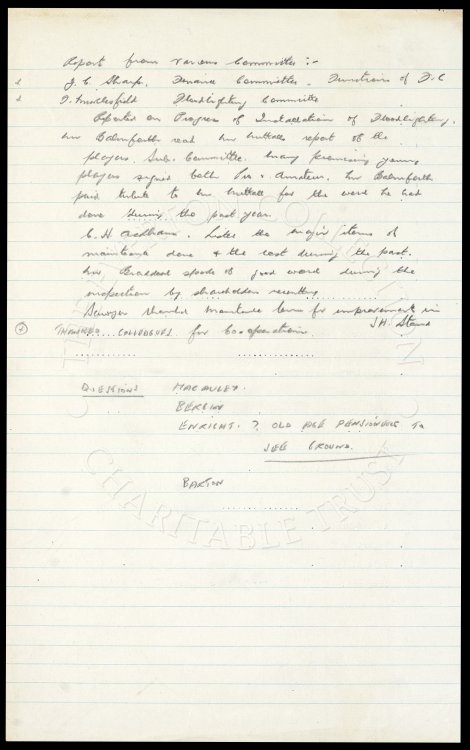 Report from various Committees :-
J. C. Sharp. Finance Committee. Functions of F.C
Floodlighting Committee
Reported on Progress of Installation of Floodlighting.
Mr Balmforth read Mr Nuttalls report of the
players Sub. Committee. Many promising young
players signed both Pro & Amateur. Mr Balmforth
paid tribute to Mr Nuttall for the work he had
done during the past year.
C. H. Listed the major items of
done & the cost during the past.
Mr spoke of good work during the
inspection by shareholders recently
thanked for improvement in
J.H. Stand
THANKED COLLEAGUES for Co-operation
QUESTIONS MACAULEY.
BERGIN
ENRIGHT. ? OLD AGE PENSIONERS TO
SEE GROUND.
BARTON
CHARITABLE TRUST